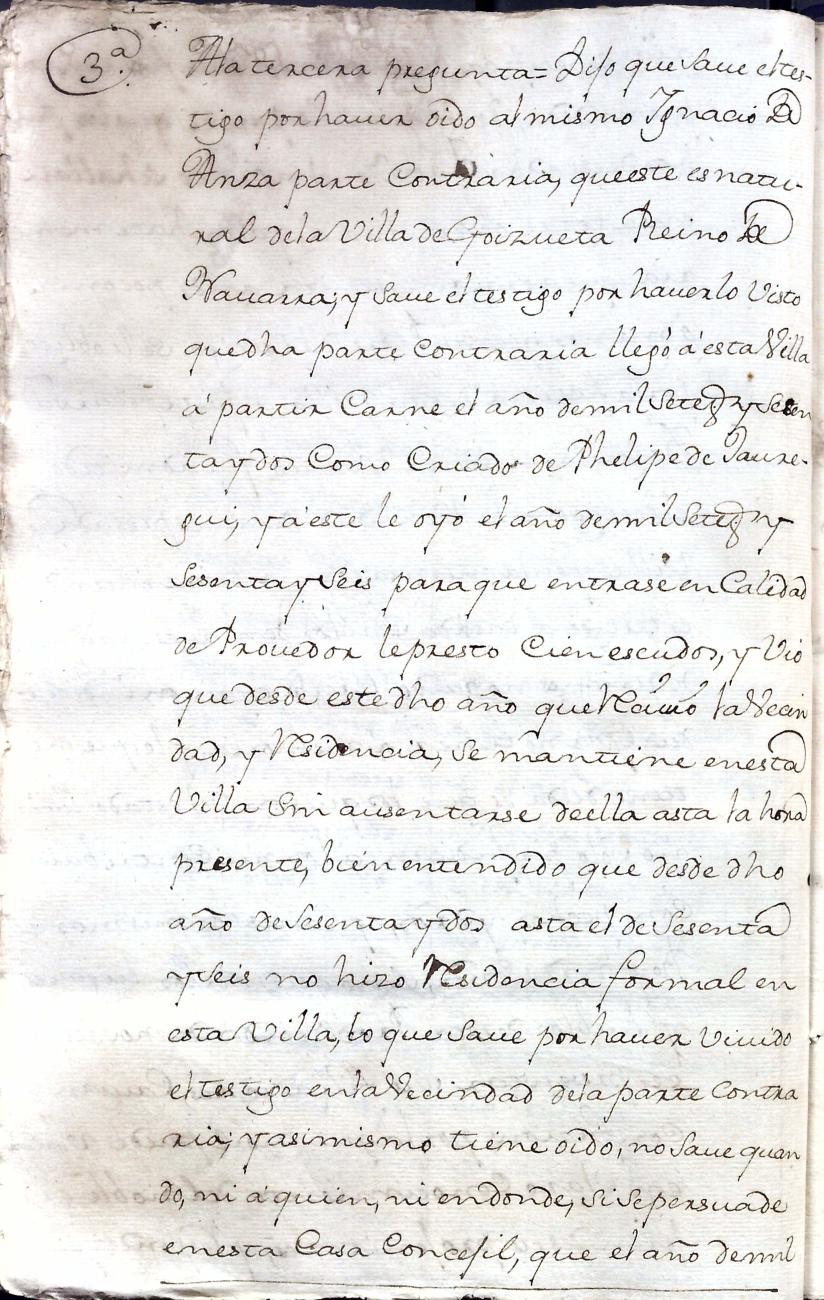 3.a
A la tercera pregunta = Dijo que save el tes-
tigo por haver oido al mismo Ygnacio de
Anza parte Contraria, que este es natu-
ral de la Villa de Goizueta Reino de
Navarra; y save el testigo por haverlo visto
que dha parte contraria llegó á esta Villa
á partir Carne el año de mil Setez.s y Sesen
ta y dos Como Criado de Phelipe de Jaure-
gui; y á este le oyó el año de mil Setez.s y
Sesenta y Seis para que entrase en Calidad
de Proveedor le presto Cien escudos, y vio
que desde este dho año que tomó la Vecin
dad, y Residencia, se mantiene en esta
Villa sin ausentarse de ella asta la hora
presente, bien entendido que desde dho
año de Sesenta y dos asta el de Sesenta
y Seis no hizo Residencia formal en
esta Villa, lo que save por haver vivido
el testigo en la Vecindad de la parte Contra
ria; y asimismo tiene oido, no save quan
do, ni á quien, ni en donde, si se persuade
en esta Casa Concejil, que el año de mil